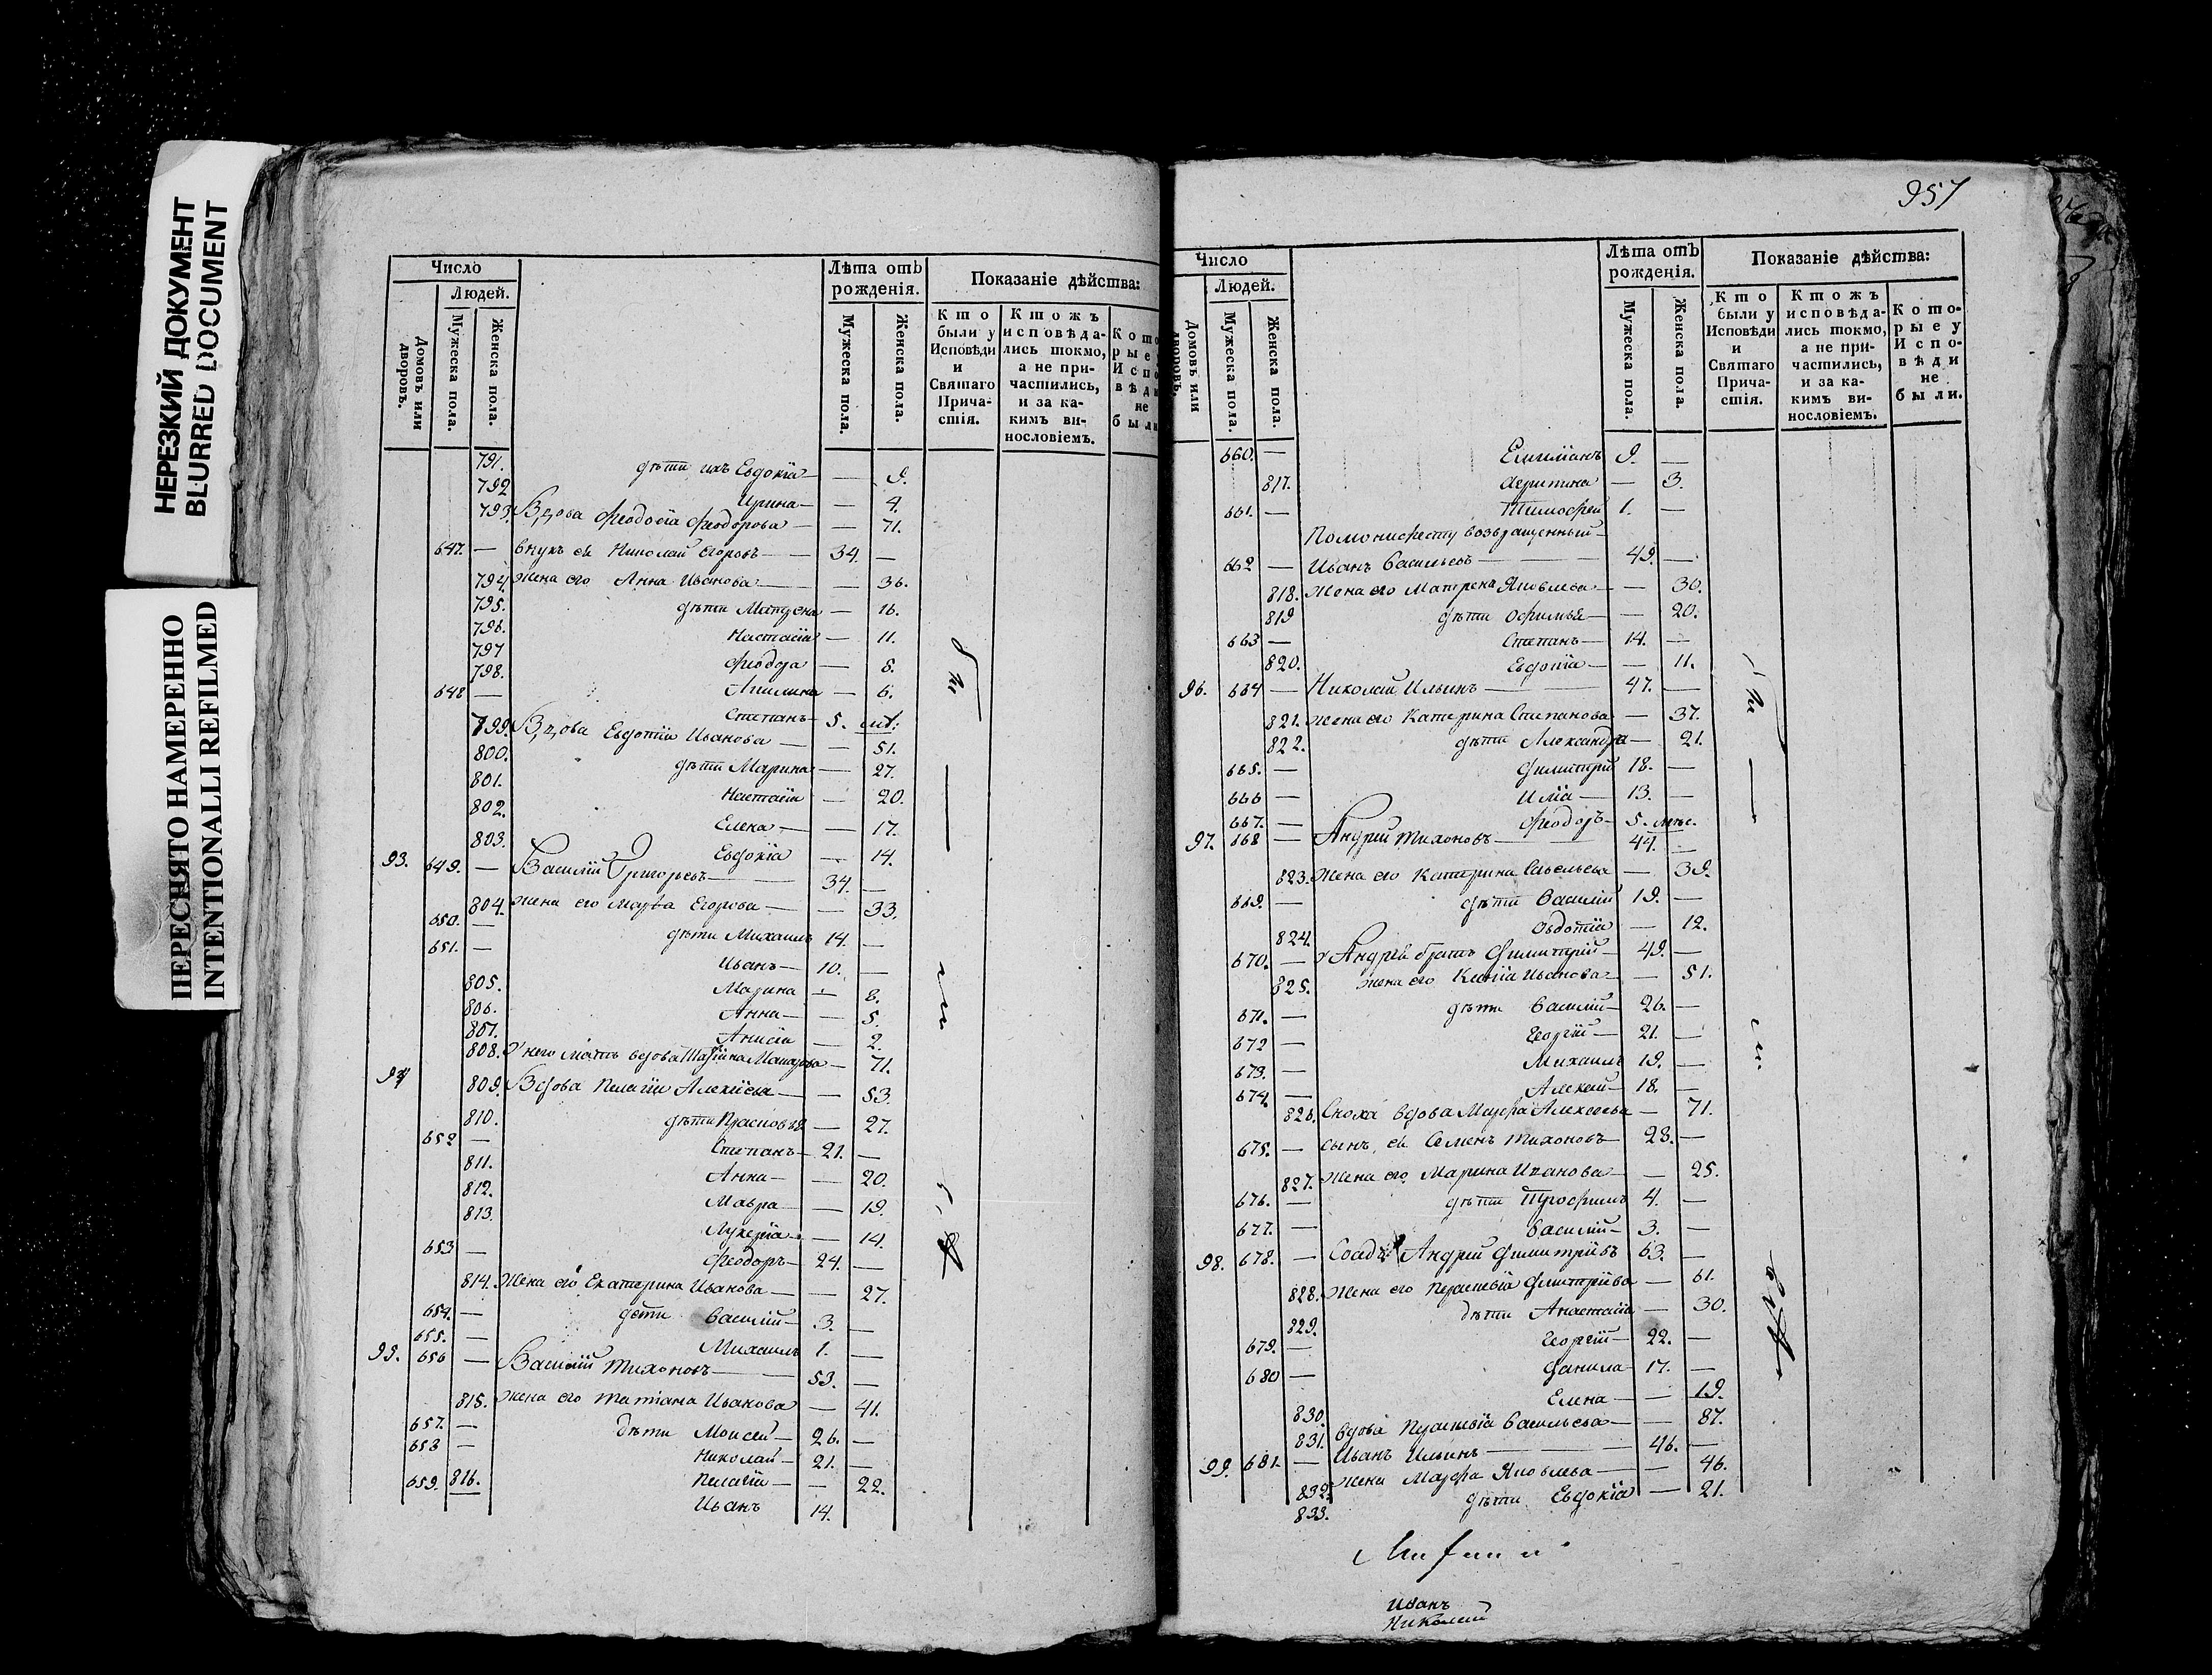 НЕРЕЗКИЙ ДОКУМЕНТ
BLURRED DOCUMENT
ПЕРЕСНЯТО НАМЕРЕННО
INTENTIONALLI REFILMED
Число
Людей.
Домовъ или дворовъ.
Мужеска пола.
Женска пола.
Лѣта отъ рожденія.
Мужеска пола.
Женска пола.
Показаніе дѣйства:
Кто были у Исповѣди и Святаго Причастія.
Ктожъ исповѣдались токмо, а не причастились, и за какимъ винословіемъ.
791. дѣти ихъ Евдокіа — 9.
792 Ирина — 4.
793. Вдова Феодосіа Феодорова — 71.
647. — внукъ ея Николай Егоровъ — 34. —
794. Жена его Анна Иванова — 36.
795. дѣти Матрена — 16.
796. Настасіа — 11.
797 Феодора — 8.
798. Акилина — 6.
648 — Степанъ — 5.
799. Вдова Евдотіа Иванова — 51.
800. дѣти Марина — 27.
801. Настасіа — 20.
802. Елена — 17.
803. Евдокіа — 14.
93. 649. — Василій Григорьевъ — 34. —
804. Жена его Марѳа Егорова — 33.
650. — дѣти Михаилъ 14. —
651. — Иванъ — 10. —
805. Марина — 8.
806. Анна — 5.
807. Анисіа — 2.
808. У него мать вдова — 71.
94 809. Вдова Пелагіа Алексіева — 53.
810. дѣти Прасковья — 27.
652 — Степанъ — 21. —
811. Анна — 20.
812. Мавра — 19.
813. Лукеріа — 14.
653 — Феодоръ — 24. —
814. Жена его Екатерина Иванова — 27.
654. — дѣти Василій — 3. —
655. — Михаилъ 1. —
95. 656 — Василій Тихоновъ — 53. —
815. Жена его Татіана Иванова — 41.
657. — дѣти Моисей — 26. —
658 — Николай — 21. —
816. Пелагіа — 22.
659. Иванъ 14.
957
Число
Людей.
Домовъ или дворовъ.
Мужеска пола.
Женска пола.
Лѣта отъ рожденія.
Мужеска пола.
Женска пола.
Показаніе дѣйства:
Кто были у Исповѣди и Святаго Причастія.
Ктожъ исповѣдались токмо, а не причастились, и за какимъ винословіемъ.
Которые у Исповѣди не были.
660. — Емиліанъ 9. —
817. — 3.
661. — Тимофей 1. —
Помонифесту возвращенный
662 — Иванъ Васильевъ — 49. —
818. Жена его Матрена Яковлева — 30.
819 дѣти Офимья — 20.
663 — Степанъ — 14. —
820. Евдокіа — 11.
96. 664 — Николай Ильинъ — 47. —
821. Жена его Катерина Степанова — 37.
822. дѣти Александра — 21.
665. — Димитрій 18. —
666 — Иліа — 13. —
667. — Феодоръ — 5. мѣс.
97. 668 — Андрей Тихоновъ — 44. —
823. Жена его Катерина Савельева — 39.
669. — дѣти Василій 19. —
824. Овдотіа — 12.
670. — У Андрея братъ Димитрій — 49. —
825. жена его Ксеніа Иванова — 51.
671. — дѣти Василій — 26. —
672 — Георгій — 21. —
673. — Михаилъ 19. —
674. — Алексей — 18. —
826. Сноха вдова Марфа Алексеева — 71.
675. — сынъ ея Семенъ Тихоновъ — 28. —
827. Жена его Марина Иванова — 25.
676. — дѣти Трофимъ 4. —
677. — Василій — 3. —
98. 678. — Андрей Димитріевъ 63. —
828. Жена его Праскевіа Дмитріева — 61.
829. дѣти Анастасіа — 30.
679. — Георгій — 22. —
680 — Данила — 17. —
830. Елена — 19.
831. вдова Праскевіа Васильева — 87.
99. 681. — Иванъ Ильинъ — 46. —
832. Жена Марфа Яковлева — 46.
833. дѣти Евдокіа — 21.
Иванъ
Николай